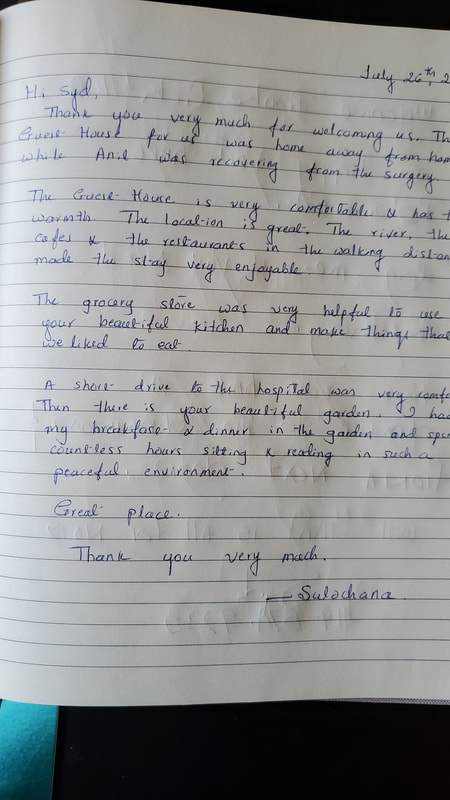 July 26th, 2
Hi Syd,
Thank you very much for welcoming us. Th
Guest House for us was home away from hom
while Anil was recovering from the surgery.
The Guest House is very comfortable & has t
warmth. The location is great. The river, the
cafes & the restaurants in the walking distan
made the stay very enjoyable
The grocery store was very helpful to use
your beautiful kitchen and make things tha
we liked to eat.
A short drive to the hospital was very comfo
Then there is your beautiful garden. I had
my breakfast & dinner in the garden and spe
countless hours sitting & reading in such a
peaceful environment.
Great place.
Thank you very much.
— Sulochana.